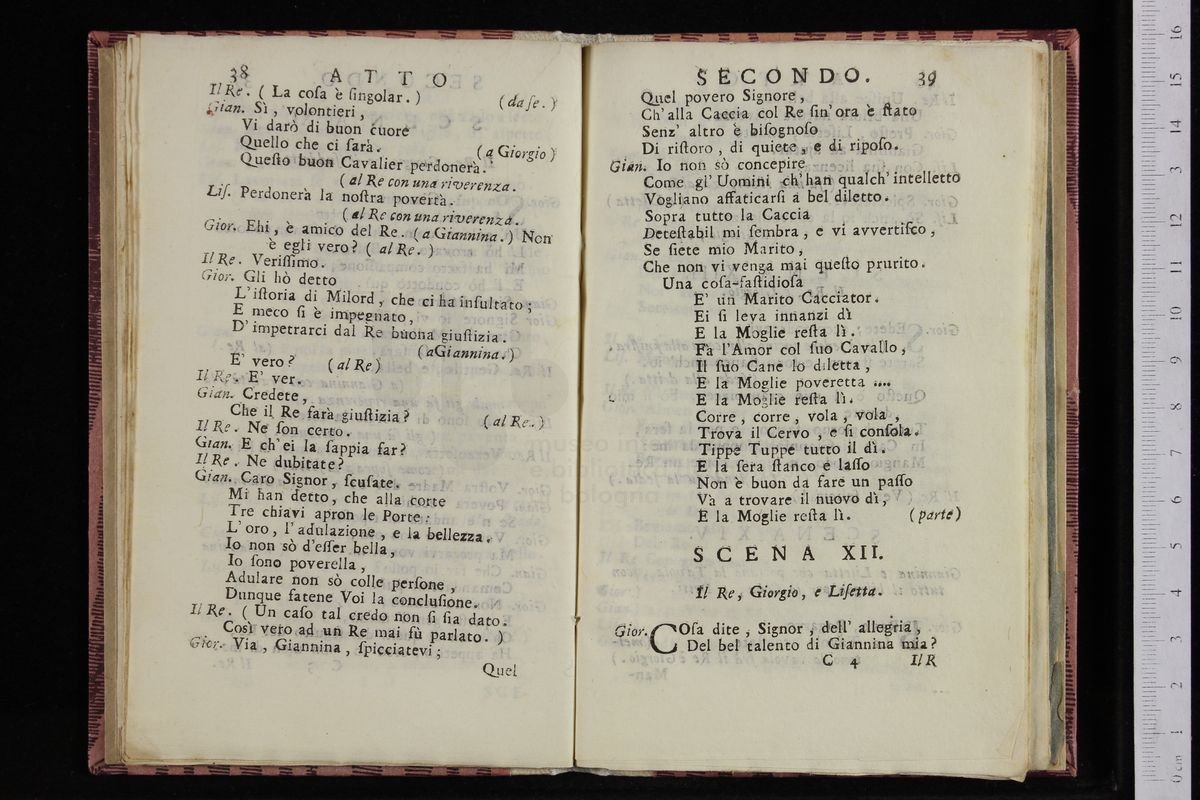 38 ATTO
Il Re. ( La coſa è ſingolar. ) (da ſe. )
Gian. Sì, volontieri,
Vi darò di buon cuore
Quello che ci ſarà. (a Giorgio )
Queſto buon Cavalier perdonerà.
( al Re con una riverenza.
Liſ. Perdonerà la noſtra povertà.
( al Re con una riverenza.
Gior. Ehi, è amico del Re. ( a Giannina. ) Non
è egli vero? ( al Re. )
Il Re. Veriſſimo.
Gior. Gli hò detto
L'iſtoria di Milord, che ci ha inſultato;
E meco ſi è impegnato,
D'impetrarci dal Re buona giuſtizia.
(a Giannina. )
E' vero? (al Re)
Il Re. E' ver.
Gian. Credete,
Che il Re farà giuſtizia? (al Re. )
Il Re. Ne ſon certo.
Gian. E ch'ei la ſappia far?
Il Re. Ne dubitate?
Gian. Caro Signor, ſcuſate.
Mi han detto, che alla corte
Tre chiavi apron le Porte:
L'oro, l'adulazione, e la bellezza.
Io non sò d'eſſer bella,
Io ſono poverella,
Adulare non sò colle perſone,
Dunque fatene Voi la concluſione.
Il Re. ( Un caſo tal credo non ſi ſia dato.
Così vero ad un Re mai fù parlato. )
Gior. Via, Giannina, ſpicciatevi;
Quel
SECONDO. 39
Quel povero Signore,
Ch'alla Caccia col Re ſin'ora è ſtato
Senz' altro è biſognoſo
Di riſtoro, di quiete, e di ripoſo.
Gian. Io non sò concepire
Come gl' Uomini ch'han qualch'intelletto
Vogliano affaticarſi a bel diletto.
Sopra tutto la Caccia
Deteſtabil mi ſembra, e vi avvertiſco,
Se ſiete mio Marito,
Che non vi venga mai queſto prurito.
Una coſa-faſtidioſa
E' un Marito Cacciator.
Ei ſi leva innanzi dì
E la Moglie reſta lì.
Fà l'Amor col ſuo Cavallo,
Il ſuo Cane lo diletta,
E la Moglie poveretta ....
E la Moglie reſta lì.
Corre, corre, vola, vola,
Trova il Cervo, e ſi conſola.
Tippe Tuppe tutto il dì.
E la ſera ſtanco e laſſo
Non è buon da fare un paſſo
Và a trovare il nuovo dì,
E la Moglie reſta lì. (parte)
SCENA XII.
Il Re, Giorgio, e Liſetta.
Gior. COſa dite, Signor, dell' allegria,
Del bel talento di Giannina mia?
C 4 Il R